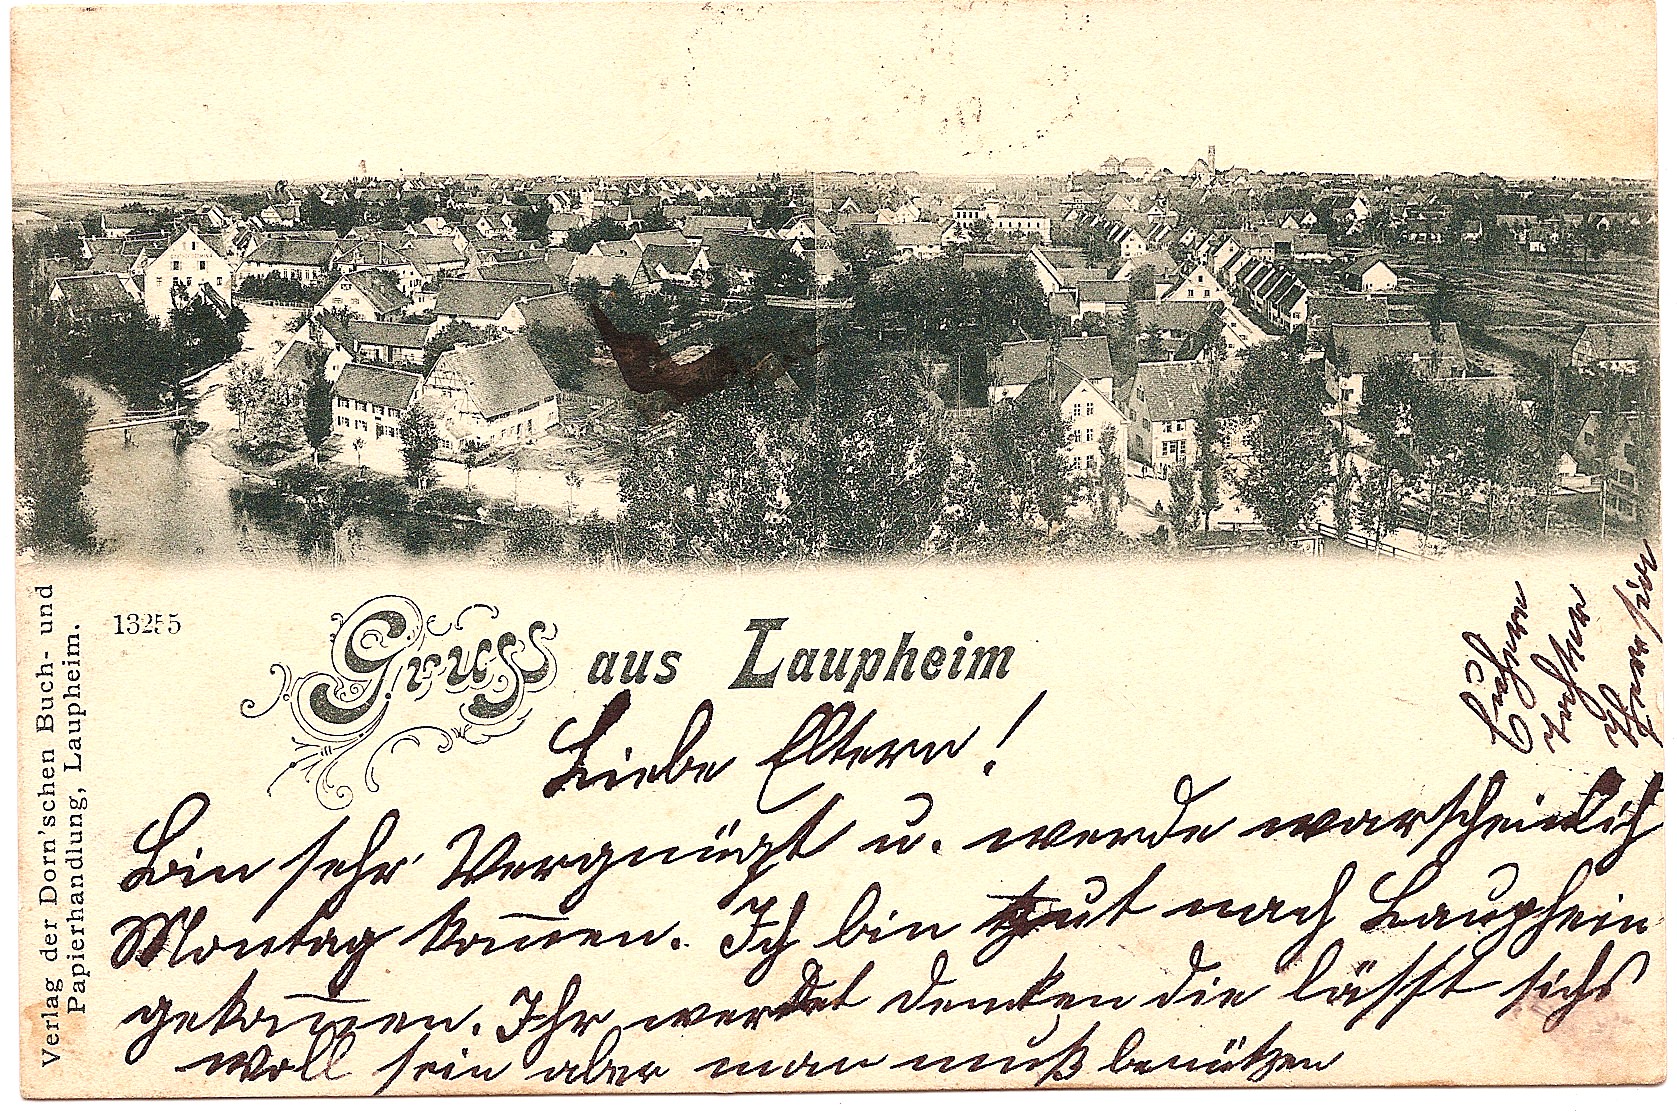 Verlag der Dorn'schen Buch- und
Papierhandlung, Laupheim.
13255
Gruss aus Laupheim
Liebe Eltern!
Bin sehr Vergnügt u. werde warscheinlich
Montag kom̅en. Ich bin gut nach Laupheim
gekom̅en. Ihr werdet denken die lässt sichs
woll sein aber man muß benützen